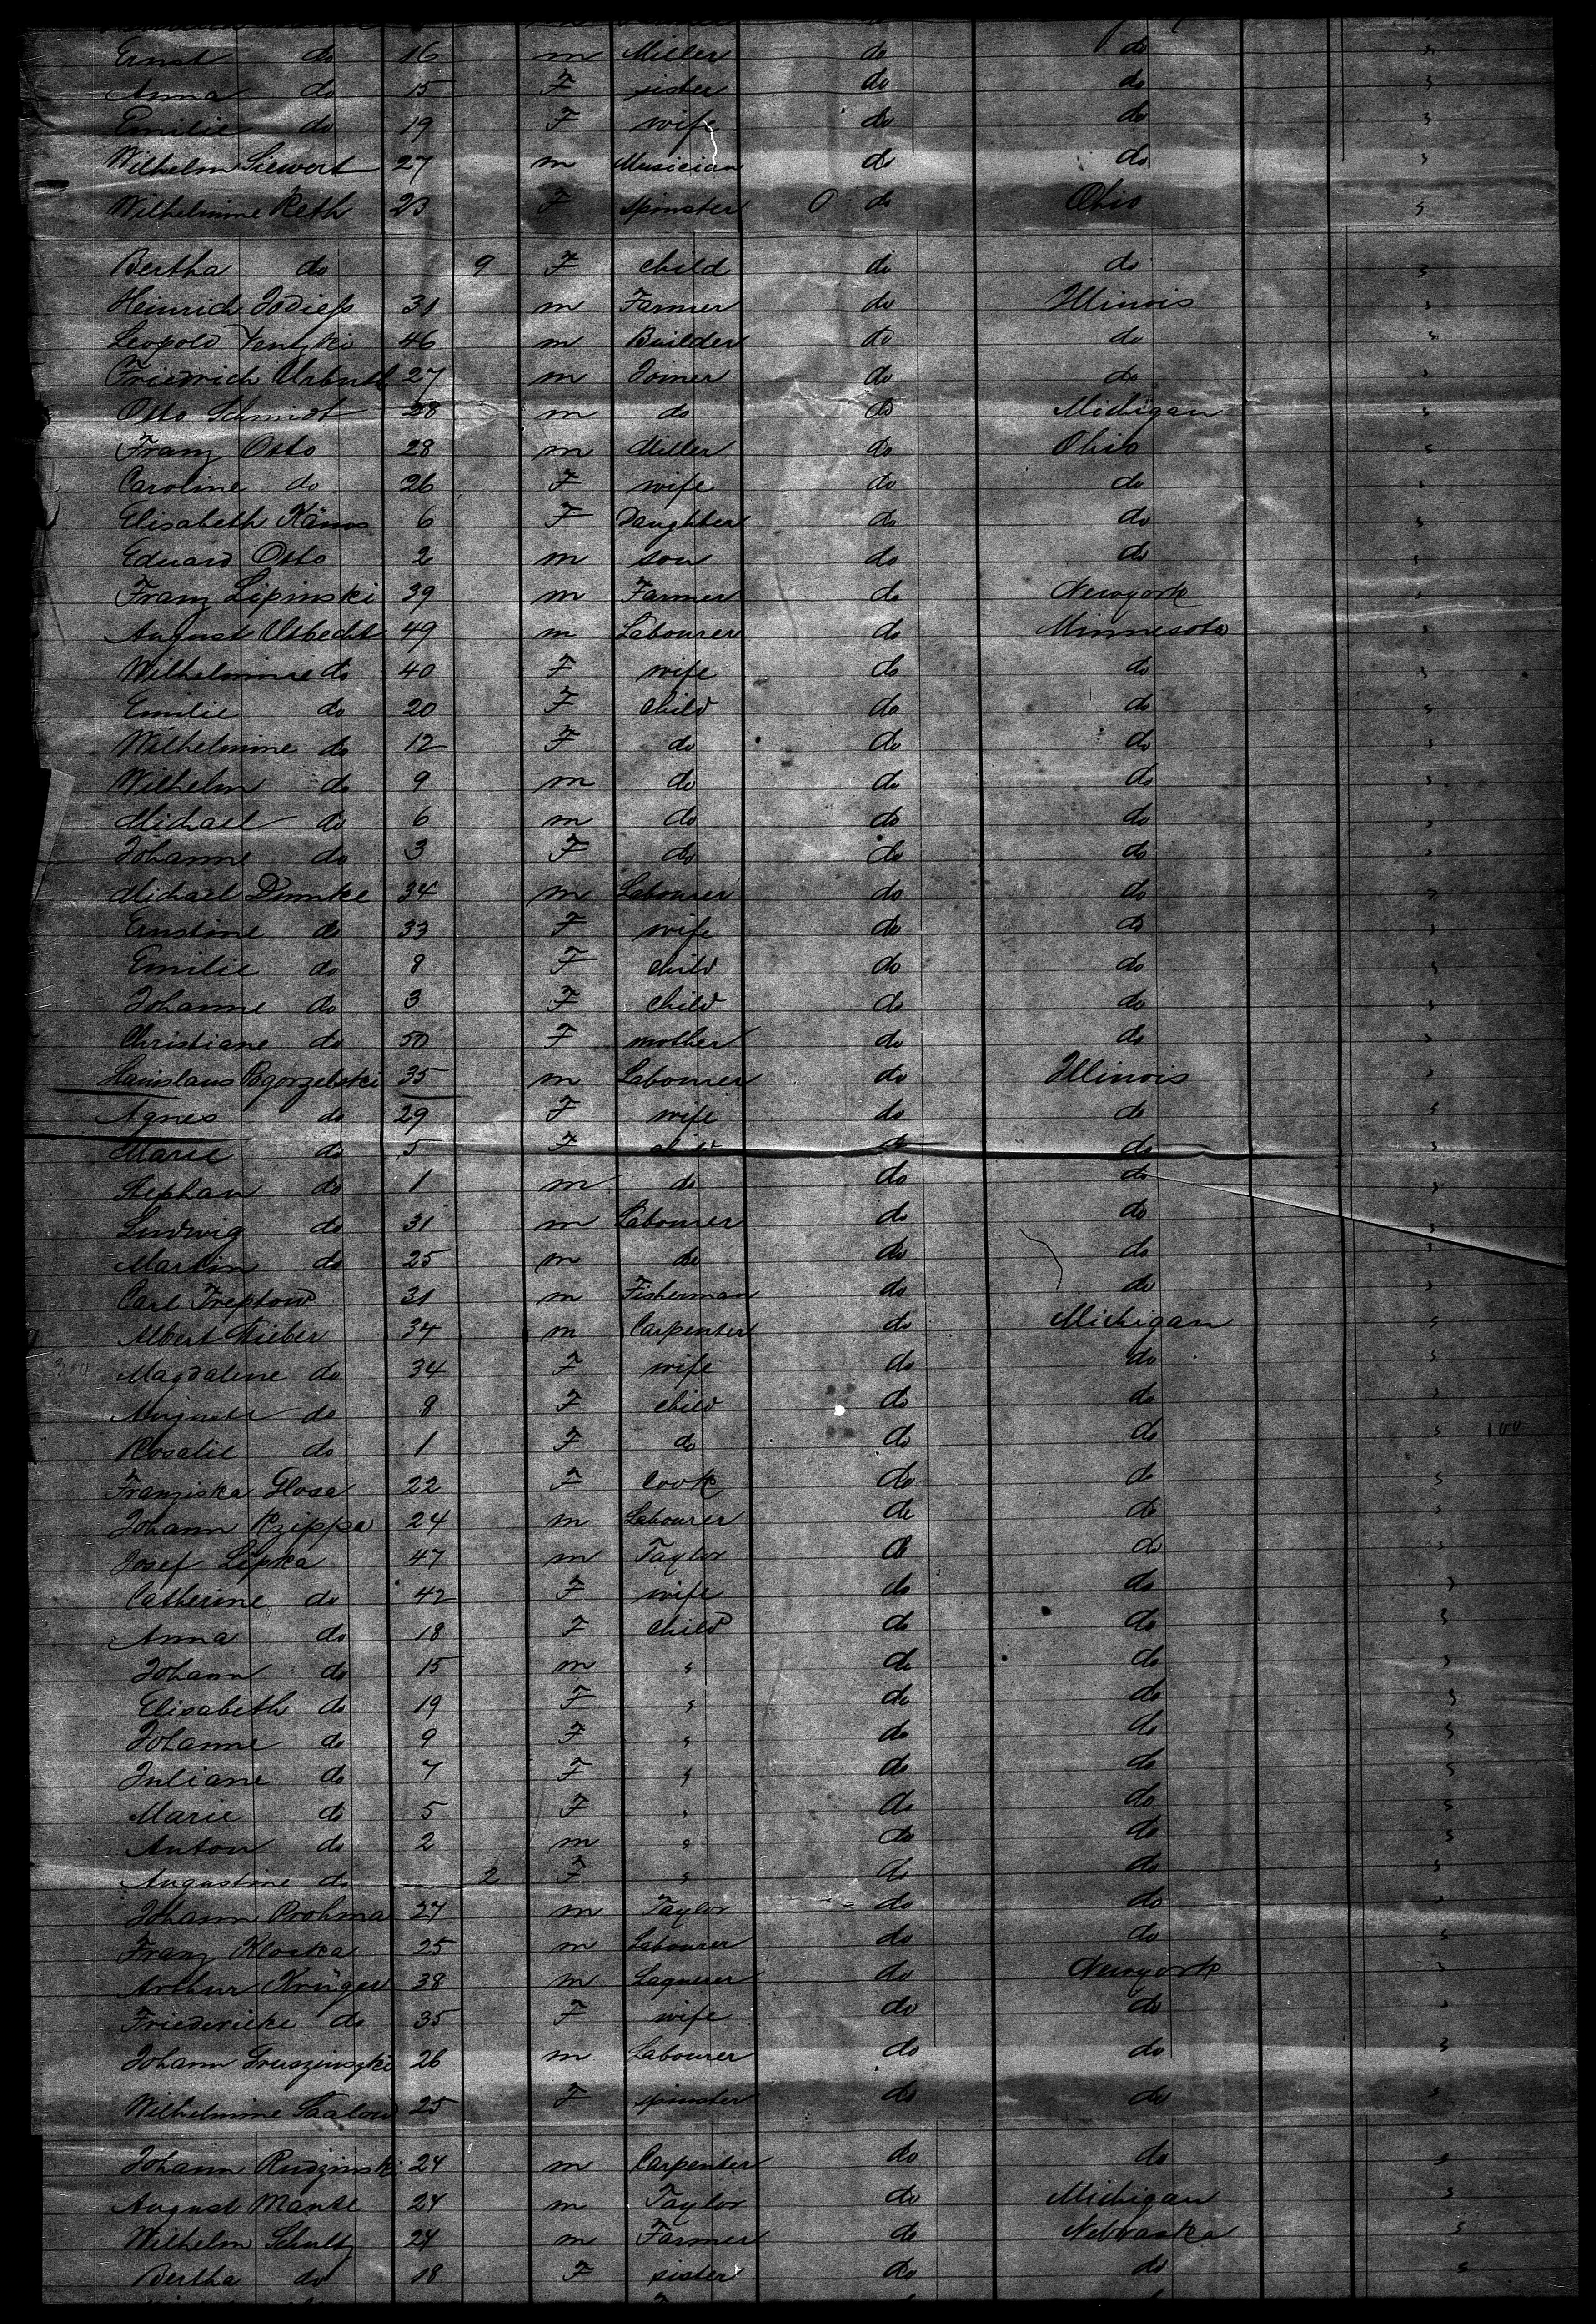 Ernst do 16 m Miller do do
Anna do 15 F sister do do
Emilie do 19 F wife do do
Wilhelm Siewert 27 m Musician do do
Wilhelmine Reth 23 F spinster 0 do Ohio
Bertha do 9 F child do do
Heinrich Jodiess 31 m Farmer do Illinois
Leopold 46 m Builder do do
Friedrich 27 m Joiner do do
Otto Schmidt 28 m do do Michigan
Franz Otto 28 m Miller do Ohio
Caroline do 26 F wife do do
Elisabeth 6 F Daughter do do
Eduard Otto 2 m son do do
Franz Lipinski 39 m Farmer do Newyork
August Utbecht 49 m Labourer do Minnesota
Wilhelmine do 40 F wife do do
Emilie do 20 F child do do
Wilhelmine do 12 F do do do
Wilhelm do 9 m do do do
Michael do 6 m do do do
Johanne do 3 F do do do
Michael Dumke 34 m Labourer do do
Ernstine do 33 F wife do do
Emilie do 8 F child do do
Johanne do 3 F child do do
Christiane do 50 F mother do do
Stanislaus Pogorzelski 35 m Labourer do Illinois
Agnes do 29 F wife do do
Marie do 5 F child do do
Stephan do 1 m do do do
Ludwig do 31 m Labourer do do
Martin do 25 m do do do
Carl Treptow 31 m Fisherman do do
Albert Stieber 34 m Carpenter do Michigan
Magdalene do 34 F wife do do
Auguste do 8 F child do do
Rosalie do 1 F do do do 100
Franziska Glosa 22 F cook do do
Johann Rzippa 24 m Labourer do do
Josef Lipka 47 m Taylor do do
Catherine do 42 F wife do do
Anna do 18 F child do do
Johann do 15 m " do do
Elisabeth do 19 F " do do
Johanne do 9 F " do do
Juliane do 7 F " do do
Marie do 5 F " do do
Anton do 2 m " do do
Augustine do 2 F " do do
Johann Prohma 27 m Taylor do do
Franz Kloska 25 m Labourer do do
Arthur Krüger 38 m Laquerer do Newyork
Friedericke do 35 F wife do do
Johann Gruszinszki 26 m Labourer do do
Wilhelmine Saalow 25 F spinster do do
Johann Rudzinski 24 m Carpenter do do
August Mante 24 m Taylor do Michigan
Wilhelm Schultz 24 m Farmer do Nebraska
Bertha do 18 F sister do do